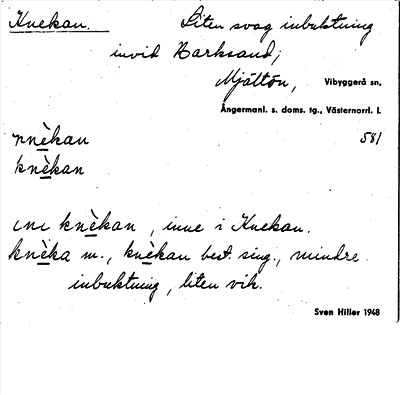 Knekan. Liten svag inbuktning
invid Barksand,
Mjältön, Vibyggerå sn.
Ångermanl. s. doms. tg., Västernorrl. l.
nnè̱kan 581
knè̱kan
ɩnɩ knè̱kan, inne i Knekan.
knè̱ka m., knè̱kan best. sing., mindre
inbuktning, liten vik.
Sven Hiller 1948